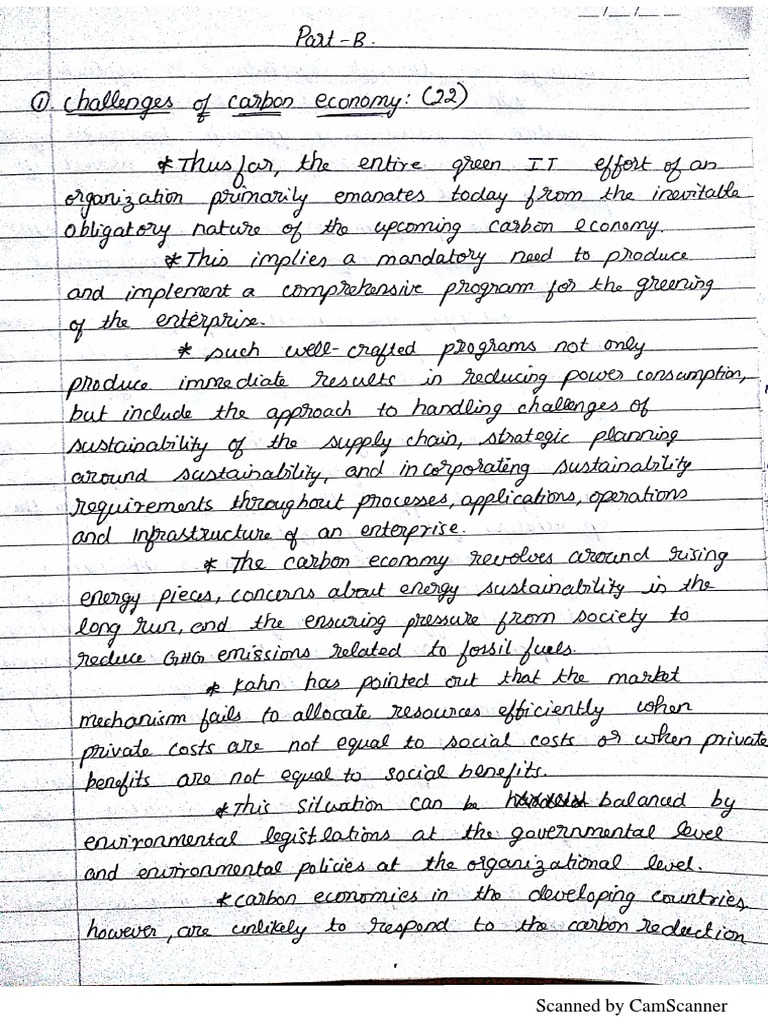 __/__/____
Part-B.
① challenges of carbon economy: (22)
* Thus far, the entire green IT effort of an
organization primarily emanates today from the inevitable
obligatory nature of the upcoming carbon economy.
* This implies a mandatory need to produce
and implement a comprehensive program for the greening
of the enterprise.
* such well-crafted programs not only
produce immediate results in reducing power consumption,
but include the approach to handling challenges of
sustainability of the supply chain, strategic planning
around sustainability, and incorporating sustainability
requirements throughout processes, applications, operations
and infrastructure of an enterprise.
* The carbon economy revolves around rising
energy pieces, concerns about energy sustainability in the
long run, and the ensuring pressure from society to
reduce GHG emissions related to fossil fuels.
* Kahn has pointed out that the market
mechanism fails to allocate resources efficiently when
private costs are not equal to social costs or when private
benefits are not equal to social benefits.
* This situation can be balanced by
environmental legistlations at the governmental level
and environmental policies at the organizational level.
* carbon economies in the developing countries,
however, are unlikely to respond to the carbon reduction
Scanned by CamScanner